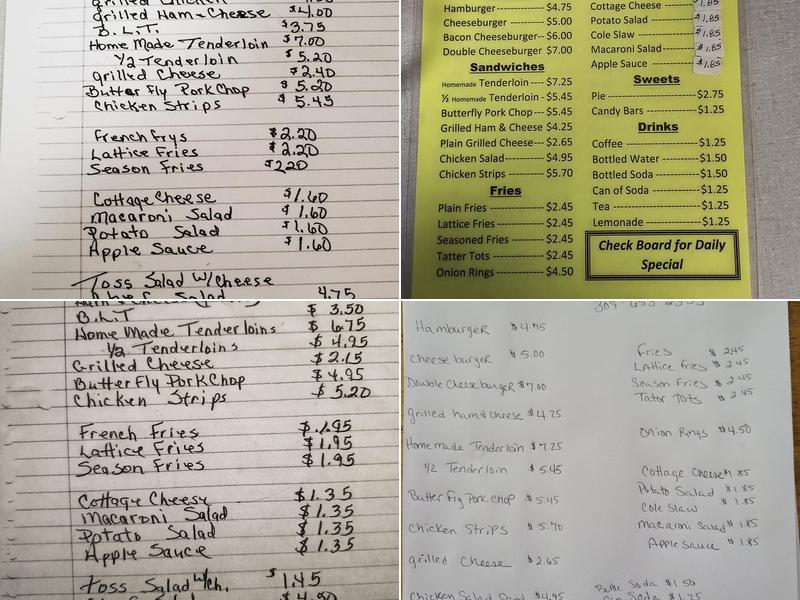 Grilled Ham & Cheese $4.00
B.L.T. $3.75
Home Made Tenderloin $7.00
1/2 Tenderloin $5.20
Grilled Cheese $2.40
Butter Fly Pork Chop $5.20
Chicken Strips $5.45
French Frys $2.20
Lattice Fries $2.20
Season Fries $2.20
Cottage Cheese $1.60
Macaroni Salad $1.60
Potato Salad $1.60
Apple Sauce $1.60
Toss Salad W/Cheese
4.75
Hamburger $4.75
Cheeseburger $5.00
Bacon Cheeseburger-- $6.00
Double Cheeseburger $7.00
Sandwiches
Homemade Tenderloin---- $7.25
½ Homemade Tenderloin - $5.45
Butterfly Pork Chop---- $5.45
Grilled Ham & Cheese $4.25
Plain Grilled Cheese--- $2.65
Chicken Salad---------- $4.95
Chicken Strips --------- $5.70
Fries
Plain Fries ------------- $2.45
Lattice Fries ------------ $2.45
Seasoned Fries --------- $2.45
Tatter Tots ------------- $2.45
Onion Rings ------------ $4.50
Cottage Cheese -------- $1.85
Potato Salad ---------- $1.85
Cole Slaw ------------- $1.85
Macaroni Salad-------- $1.85
Apple Sauce ---------- $1.85
Sweets
Pie ---------------------- $2.75
Candy Bars ------------- $1.25
Drinks
Coffee ------------------ $1.25
Bottled Water ---------- $1.50
Bottled Soda ----------- $1.50
Can of Soda ------------ $1.25
Tea --------------------- $1.25
Lemonade -------------- $1.25
Check Board for Daily
Special
B.L.T $3.50
Home Made Tenderloins $6.75
1/2 Tenderloins $4.95
Grilled Cheese $2.15
Butter Fly Pork Chop $4.95
Chicken Strips $5.20
French Fries $1.95
Lattice Fries $1.95
Season Fries $1.95
Cottage Cheese $1.35
Macaroni Salad $1.35
Potato Salad $1.35
Apple Sauce $1.35
Toss Salad w/ch. $1.45
Hamburger $4.75
cheese burger $5.00
Double Cheeseburger $7.00
grilled ham & cheese $4.25
Home made Tenderloin $7.25
1/2 Tenderloin $5.45
Butter Fly Pork chop $5.45
Chicken Strips $5.70
grilled Cheese $2.65
Chicken Salad $4.95
Fries $2.45
Lattice fries $2.45
Season Fries $2.45
Tator Tots $2.45
Onion Rings $4.50
Cottage Cheese $1.85
Potato Salad $1.85
Cole Slaw $1.85
macaroni Salad $1.85
Apple Sauce $1.85
Bottle Soda $1.50
Can Soda $1.25